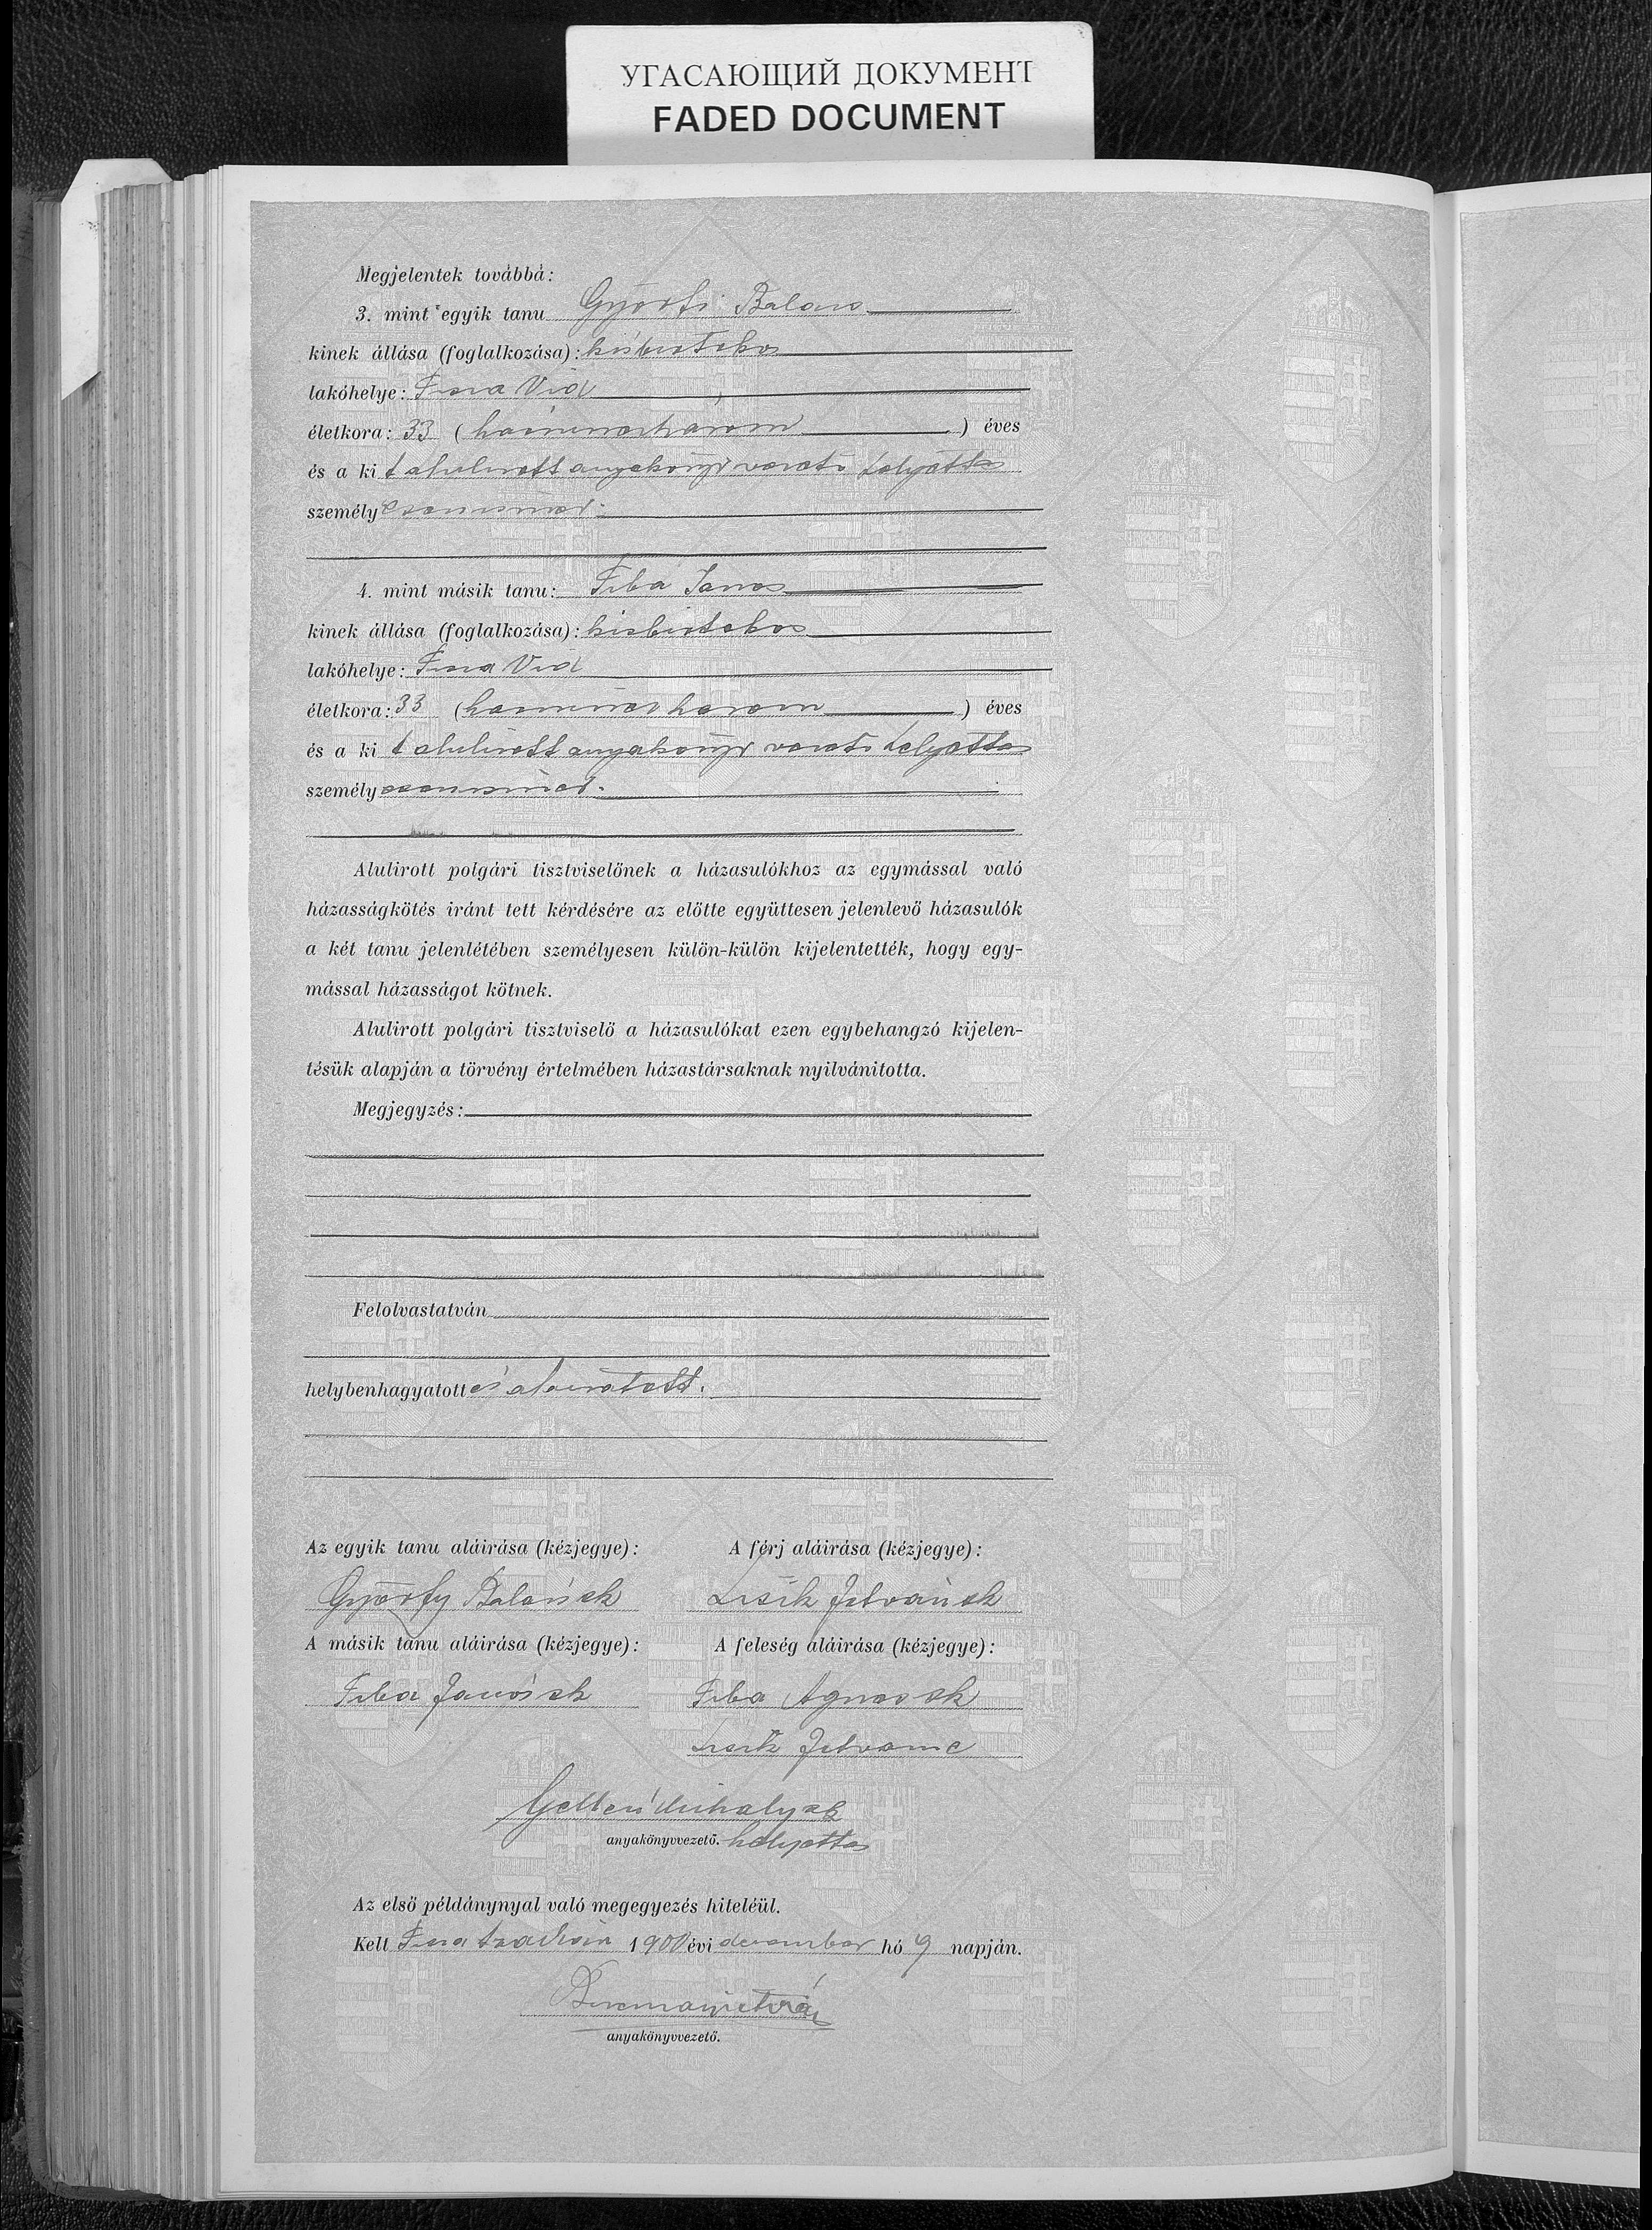 УГАСАЮЩИЙ ДОКУМЕНТ
FADED DOCUMENT
Megjelentek továbbá:
3. mint egyik tanu Györfi Balázs
kinek állása (foglalkozása): kisbirtokos
lakóhelye: Tisza Vid
életkora: 33 (harminczhárom) éves
és a ki alulirott anyakönyvvezető helyettes
személyesen ismer.
4. mint másik tanu: Fiba János
kinek állása (foglalkozása): kisbirtokos
lakóhelye: Tisza Vid
életkora: 33 (harminczhárom) éves
és a ki alulirott anyakönyvvezető helyettes
személyesen ismer.
Alulirott polgári tisztviselőnek a házasulókhoz az egymással való
házasságkötés iránt tett kérdésére az előtte együttesen jelenlevő házasulók
a két tanu jelenlétében személyesen külön-külön kijelentették, hogy egy-
mással házasságot kötnek.
Alulirott polgári tisztviselő a házasulókat ezen egybehangzó kijelen-
tésük alapján a törvény értelmében házastársaknak nyilvánitotta.
Megjegyzés:
Felolvastatván
helybenhagyatott és aláiratott.
Az egyik tanu aláirása (kézjegye): A férj aláirása (kézjegye):
Györfy Balázs sk István sk
A másik tanu aláirása (kézjegye): A feleség aláirása (kézjegye):
Fiba János sk Fiba Ágnes sk
Istvánné
Gelléri Mihály sk
anyakönyvvezető. helyettes
Az első példánynyal való megegyezés hiteléül.
Kelt 1900 évi december hó 9 napján.
anyakönyvvezető.